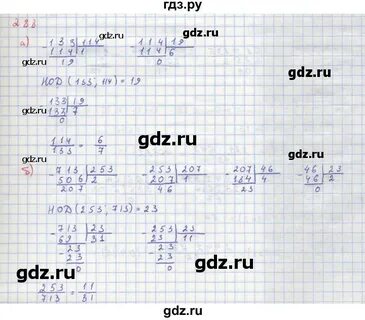 гдз.ру
283
а) 133 | 114   114 | 19
114 | 1   114 | 6
19   0
НОД (133, 114) = 19
133 | 19
133 | 7
0
114/133 = 6/7
gdz.ru
gdz.ru
б) 713 | 253   253 | 207   207 | 46   46 | 23
506 | 2   207 | 1   184 | 4   46 | 2
207   46   23   0
НОД (253, 713) = 23
gdz.ru
gdz.ru
713 | 23   253 | 23
69 | 31   23 | 11
23   23
23   23
0   0
253/713 = 11/31
gdz.ru
gdz.ru